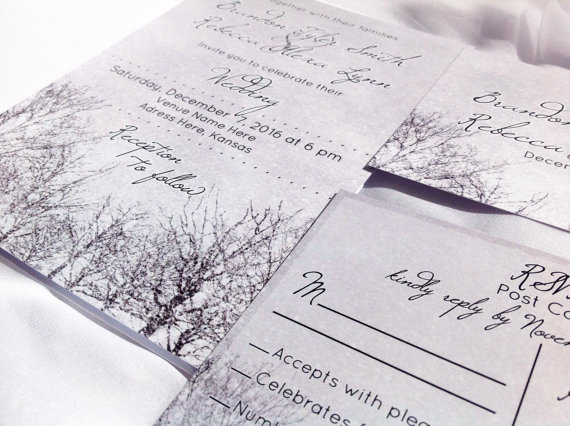 together with their families
Brandon
Smith
&
Rebecca
Lynn
invite you to celebrate their
Wedding
Saturday, December 7, 2016 at 6 pm
Venue Name Here
Adress Here, Kansas
Reception
To follow
Brandon
Rebecca
Decem
RSV
Post Ca
kindly reply by Novem
M
Accepts with plea
Celebrates
Numb